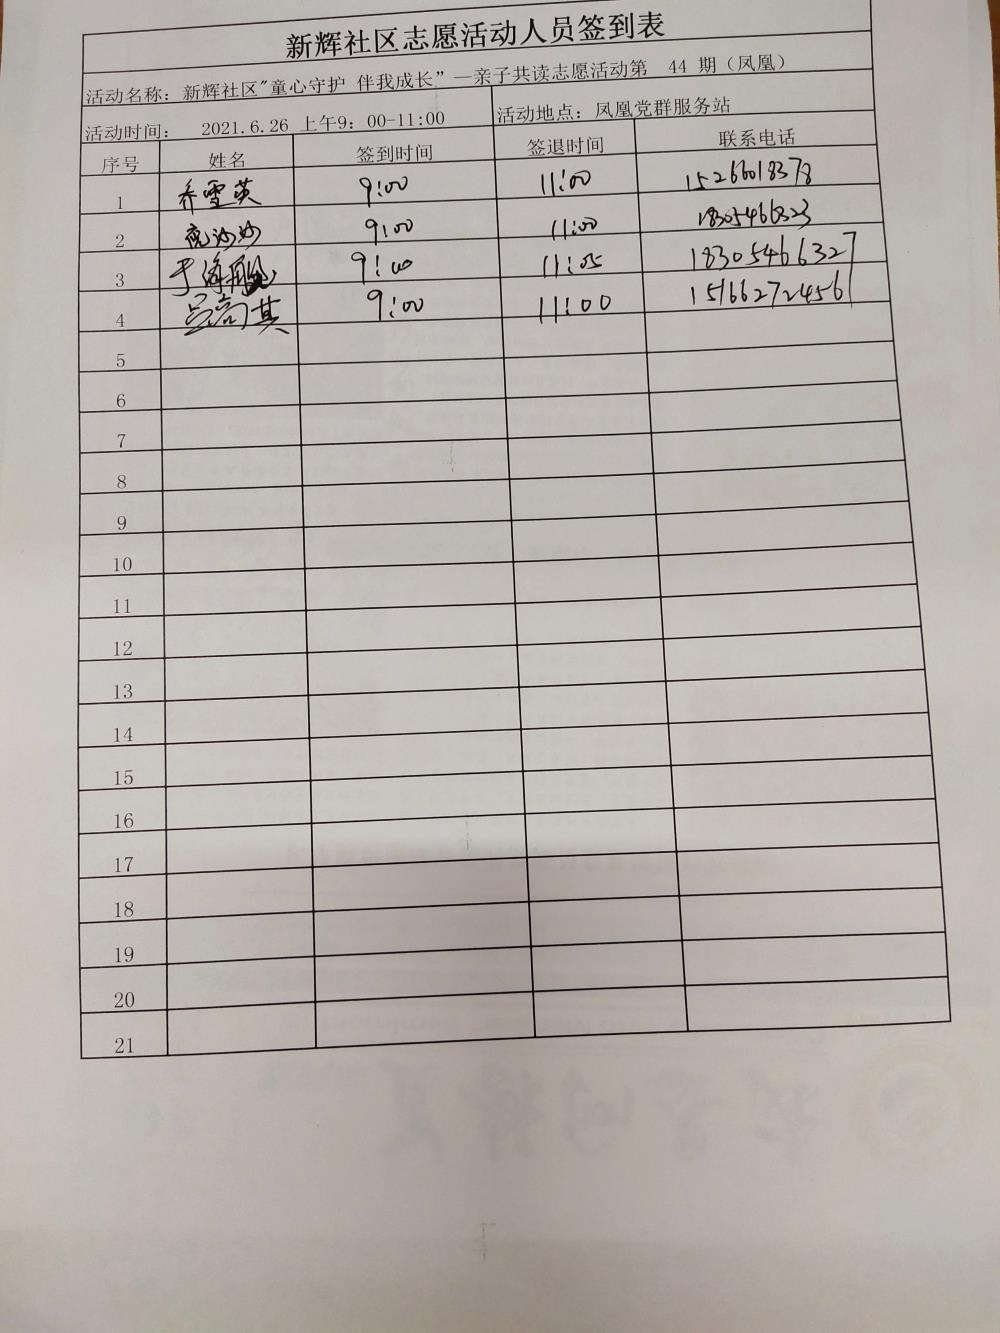 新辉社区志愿活动人员签到表
活动名称：新辉社区"童心守护 伴我成长"—亲子共读志愿活动第 44 期（凤凰）
活动时间： 2021.6.26 上午9：00-11:00 活动地点：凤凰党群服务站
序号 姓名 签到时间 签退时间 联系电话
1 乔雪英 9:00 11:00 15266018378
2 沙沙 9:00 11:00 18305466323
3 于海 9:00 11:05 18305466327
4 吕高其 9:00 11:00 15166272456
5
6
7
8
9
10
11
12
13
14
15
16
17
18
19
20
21